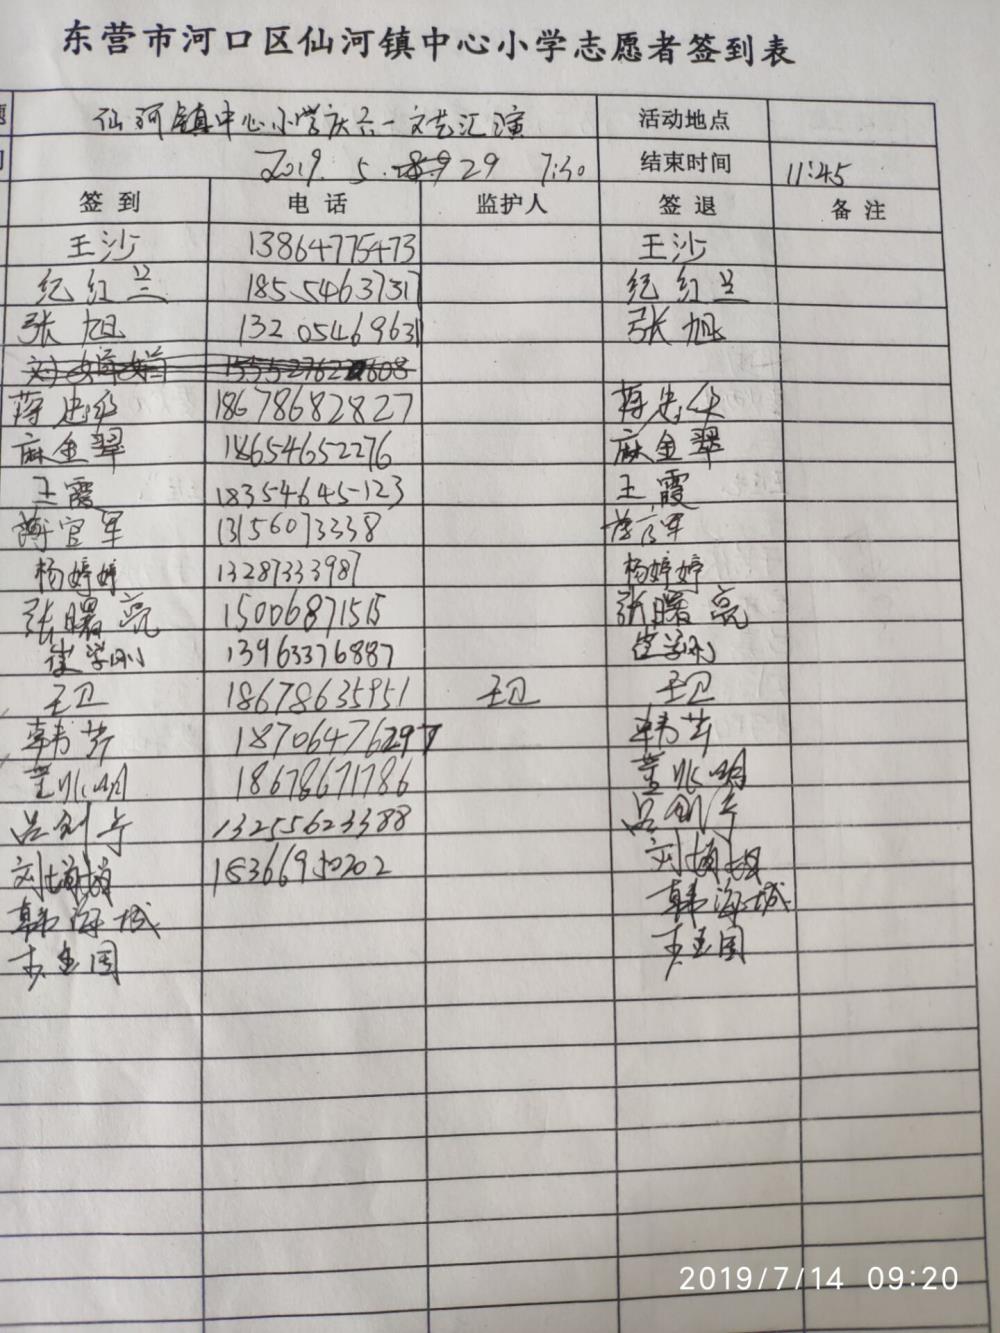 东营市河口区仙河镇中心小学志愿者签到表
仙河镇中心小学庆六一文艺汇演 活动地点
2019.5.29 7:30 结束时间 11:45
签到 电话 监护人 签退 备注
王沙 13864775473 王沙
纪红兰 18554637317 纪红兰
张旭 13205469631 张旭
18678682827
麻金翠 18654652276 麻金翠
王霞 18354645123 王霞
13156073338
杨婷婷 13287333987 杨婷婷
张曙亮 15006871515 张曙亮
崔学刚 13963376887 崔学刚
王卫 18678635951 王卫 王卫
韩芳 18706476297 韩芳
董兆明 18678671786 董兆明
13255623388
18366950202
韩海城 韩海城
2019/7/14 09:20